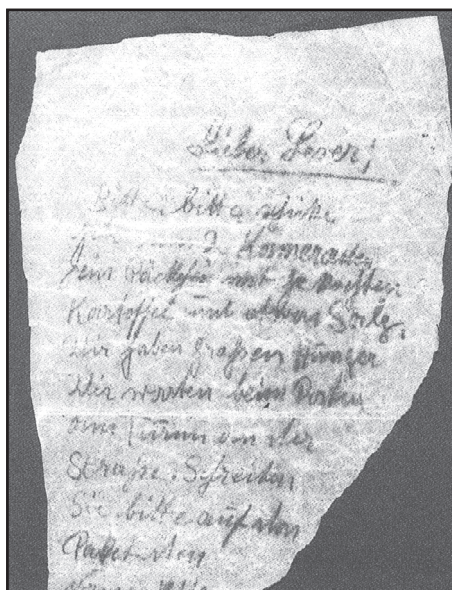 Lieber Leser!
Bitte bitte schicke
2 Kameraden
ein Päckchen mit gekochten
Kartoffel und etwas Salz.
Wir haben großen Hunger
Wir warten beim Posten
am Turm an der
Straße. Schreiben
Sie bitte auf den
Paket den